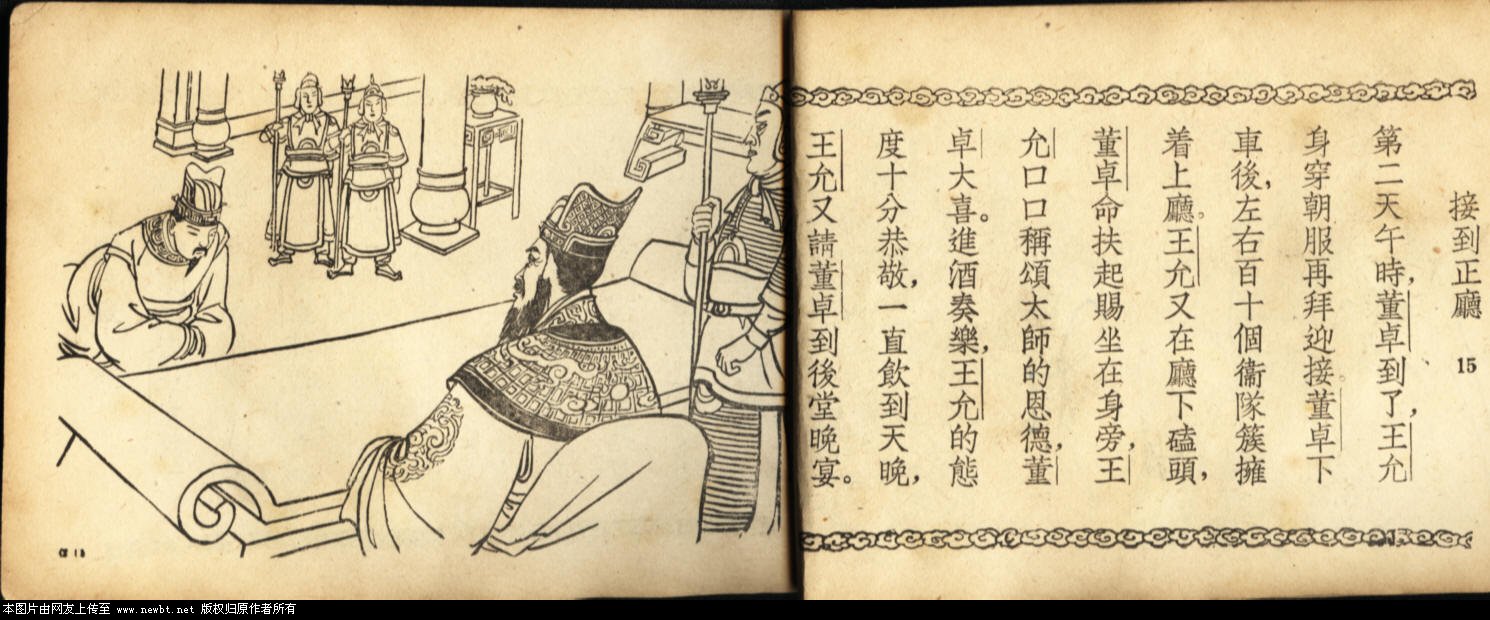 接到正廳 15
第二天午時，董卓到了，王允
身穿朝服再拜迎接。董卓下
車後，左右百十個衞隊簇擁
着上廳。王允又在廳下磕頭，
董卓命扶起賜坐在身旁，王
允口口稱頌太師的恩德，董
卓大喜。進酒奏樂，王允的態
度十分恭敬，一直飲到天晚，
王允又請董卓到後堂晚宴。
本图片由网友上传至 www.newbt.net 版权归原作者所有